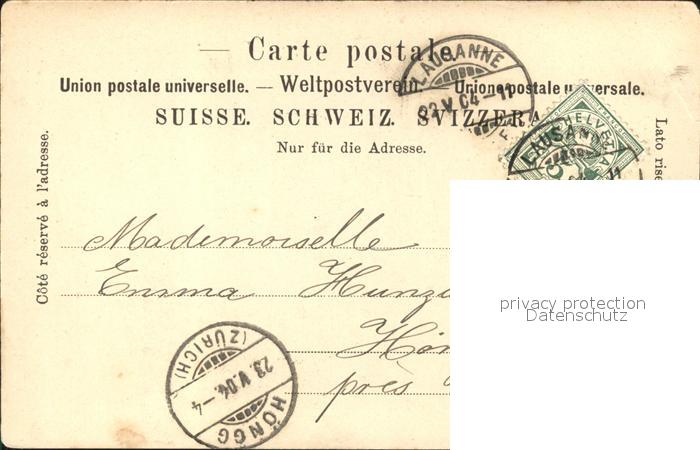 Carte postale.
Union postale universelle. — Weltpostverein. — Unione postale
SUISSE. SCHWEIZ. SVIZZERA
Nur für die Adresse.
Côté réservé à l'adresse.
Lato
LAUSANNE
V.04-11
HELVETIA
LAUSANNE
Mademoiselle
Emma
près
(ZÜRICH)
23.V.04.-4
HÖNGG
privacy protection
Datenschutz